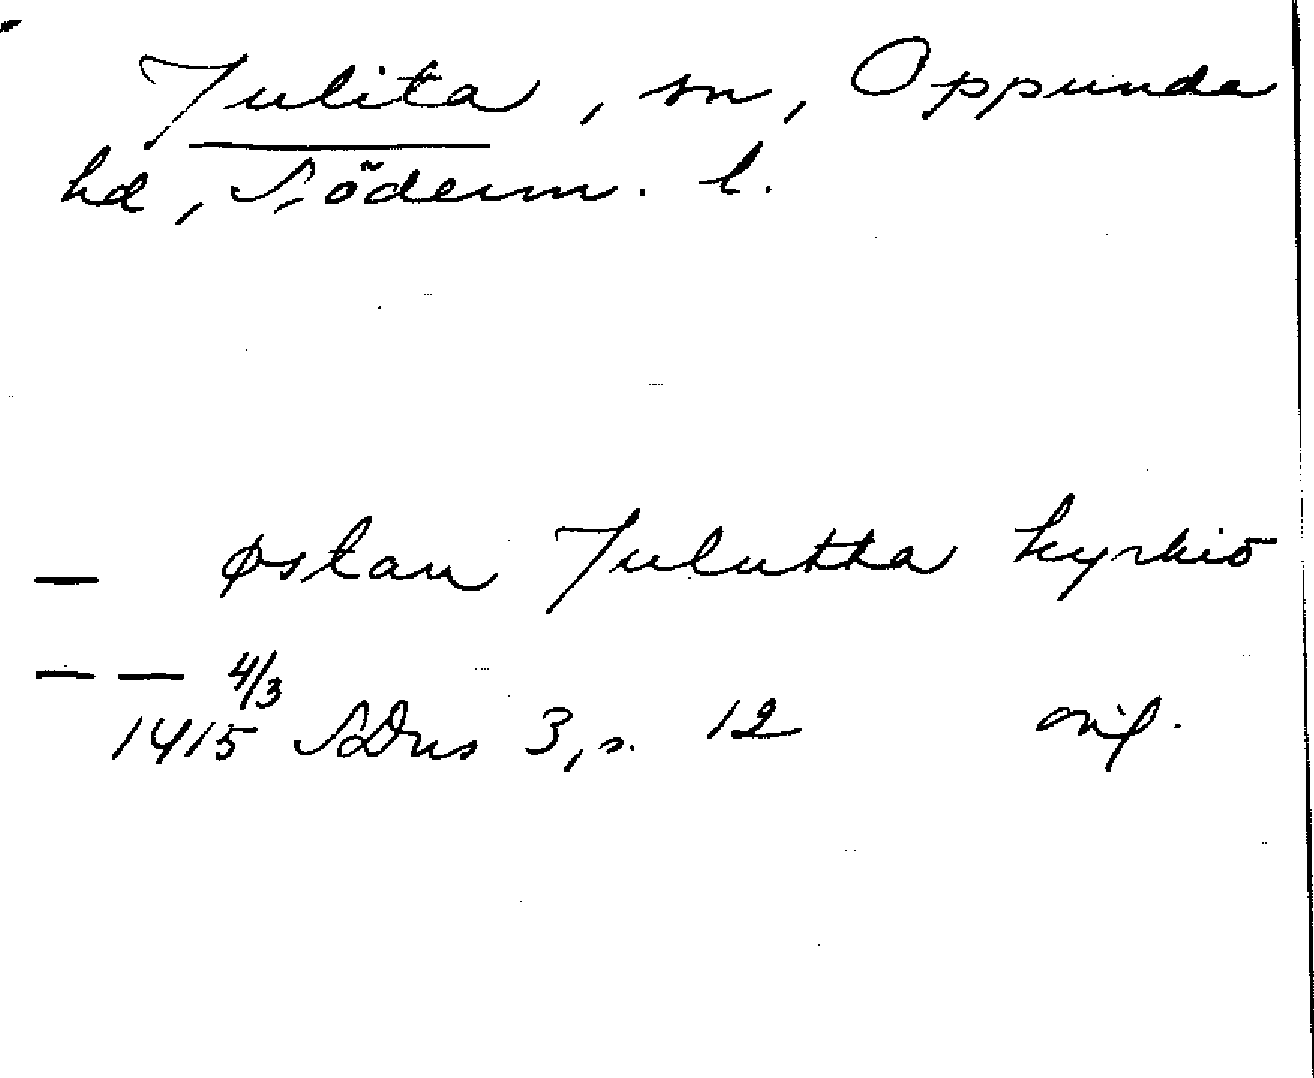 Julita, sn, Oppunda
hd, Söderm. l.
— østan Julutha kyrkio
— — 4/3
1415 SDns 3, s. 12 orig.